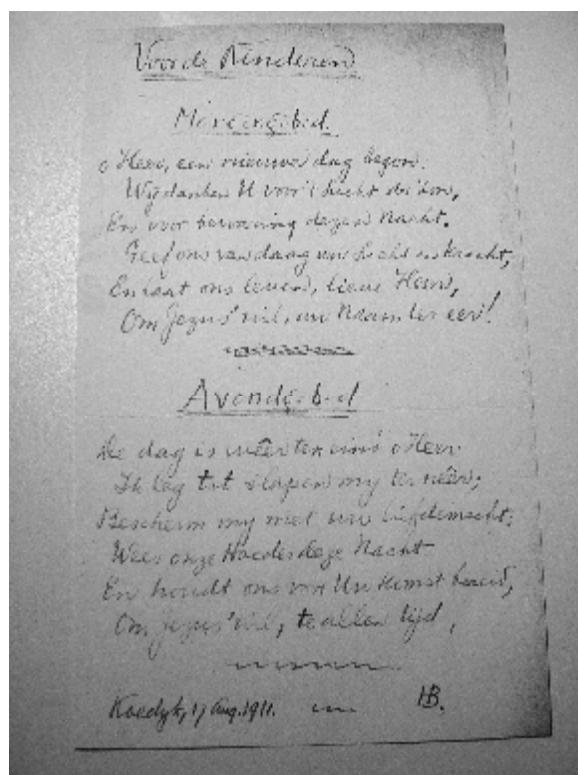 Voor de Kinderen
Morgengebed.
o Heer, een nieuwe dag begon.
Wij danken U voor 't licht der zon,
En voor bewaring dezen Nacht.
Geef ons vandaag uw licht en kracht,
En laat ons leven, lieve Heer,
Om Jezus' wil, uw Naam ter eer!
Avondgebed
De dag is weêr ten eind' o Heer
Ik leg tot slapen my ter neêr;
Bescherm my met uw liefdemacht;
Wees onze Hoeder deze Nacht
En houdt ons voor Uw komst bereid,
Om Jezus' wil, te allen tijd,
Koedyk, 17 Aug. 1911.
HB.